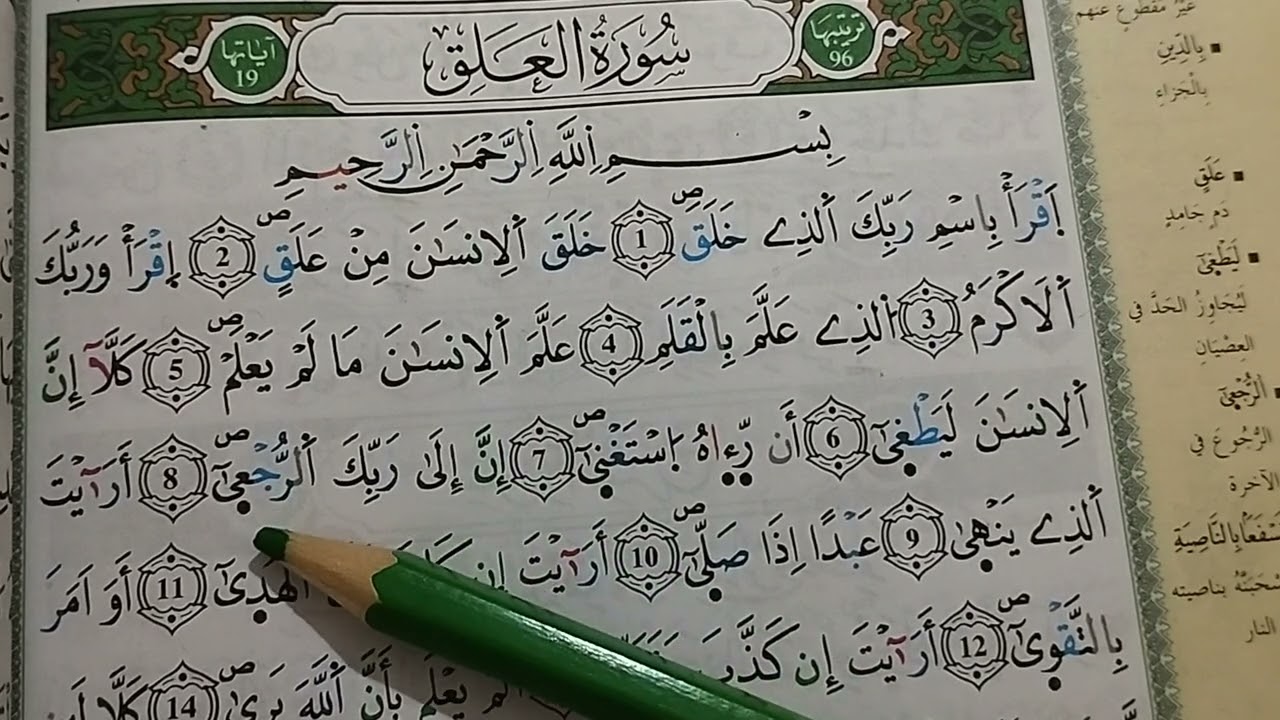 ترتيبها 96
سُورَةُ العَلَقِ
آياتها 19
بِسْمِ اِللَّهِ اِلرَّحْمَٰنِ اِلرَّحِيمِ
اِ۪قْرَأْ بِاسْمِ رَبِّكَ اَ۬لذِے خَلَقَۖ 1 خَلَقَ اَ۬لِانسَٰنَ مِنْ عَلَقٍۖ 2 اِ۪قْرَأْ وَرَبُّكَ
اَ۬لَاكْرَمُ 3 اُ۬لذِے عَلَّمَ بِالْقَلَمِ 4 عَلَّمَ اَ۬لِانسَٰنَ مَا لَمْ يَعْلَمْۖ 5 كَلَّآ إِنَّ
اَ۬لِانسَٰنَ لَيَطْغ۪يٰٓ 6 أَن رّ۪ء۪اهُ اُ۪سْتَغْن۪يٰٓۖ 7 إِنَّ إِلَىٰ رَبِّكَ اَ۬لرُّجْع۪يٰٓۖ 8 أَرَٰٓيْتَ
اَ۬لذِے يَنْه۪ىٰ 9 عَبْدًا اِذَا صَلّ۪يٰٓۖ 10 أَرَٰٓيْتَ إِن اَ۬لْهُد۪ىٰٓ 11 أَوَ اَمَرَ
بِالتَّقْو۪ىٰٓۖ 12 أَرَٰٓيْتَ إِن كَذَّبَ
يَعْلَم بِأَنَّ اَ۬للَّهَ يَر۪ىٰۖ 14 كَلَّا
غَيْرُ مَقْطُوعٍ عَنهم
▪ بِالدِّينِ
بِالْجَزَاءِ
▪ عَلَقٍ
دَمٍ جَامِدٍ
▪ لَيَطْغ۪يٰٓ
لَيُجَاوِزُ الحَدَّ في
العِصْيَانِ
▪ اَ۬لرُّجْع۪يٰٓ
الرُّجُوعَ في
الآخرة
لَنَسْفَعَاۢ بِالنَّاصِيَةِ
بناصيته
النار